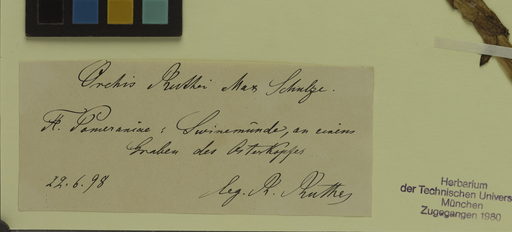 Orchis Ruthei Max Schulze.
Fl. Pomeraniae: Swinemünde, an einem
Graben des Osterkopfes
22.6.98
leg. R. Ruthe
Herbarium
der Technischen Univers
München
Zugegangen 1980